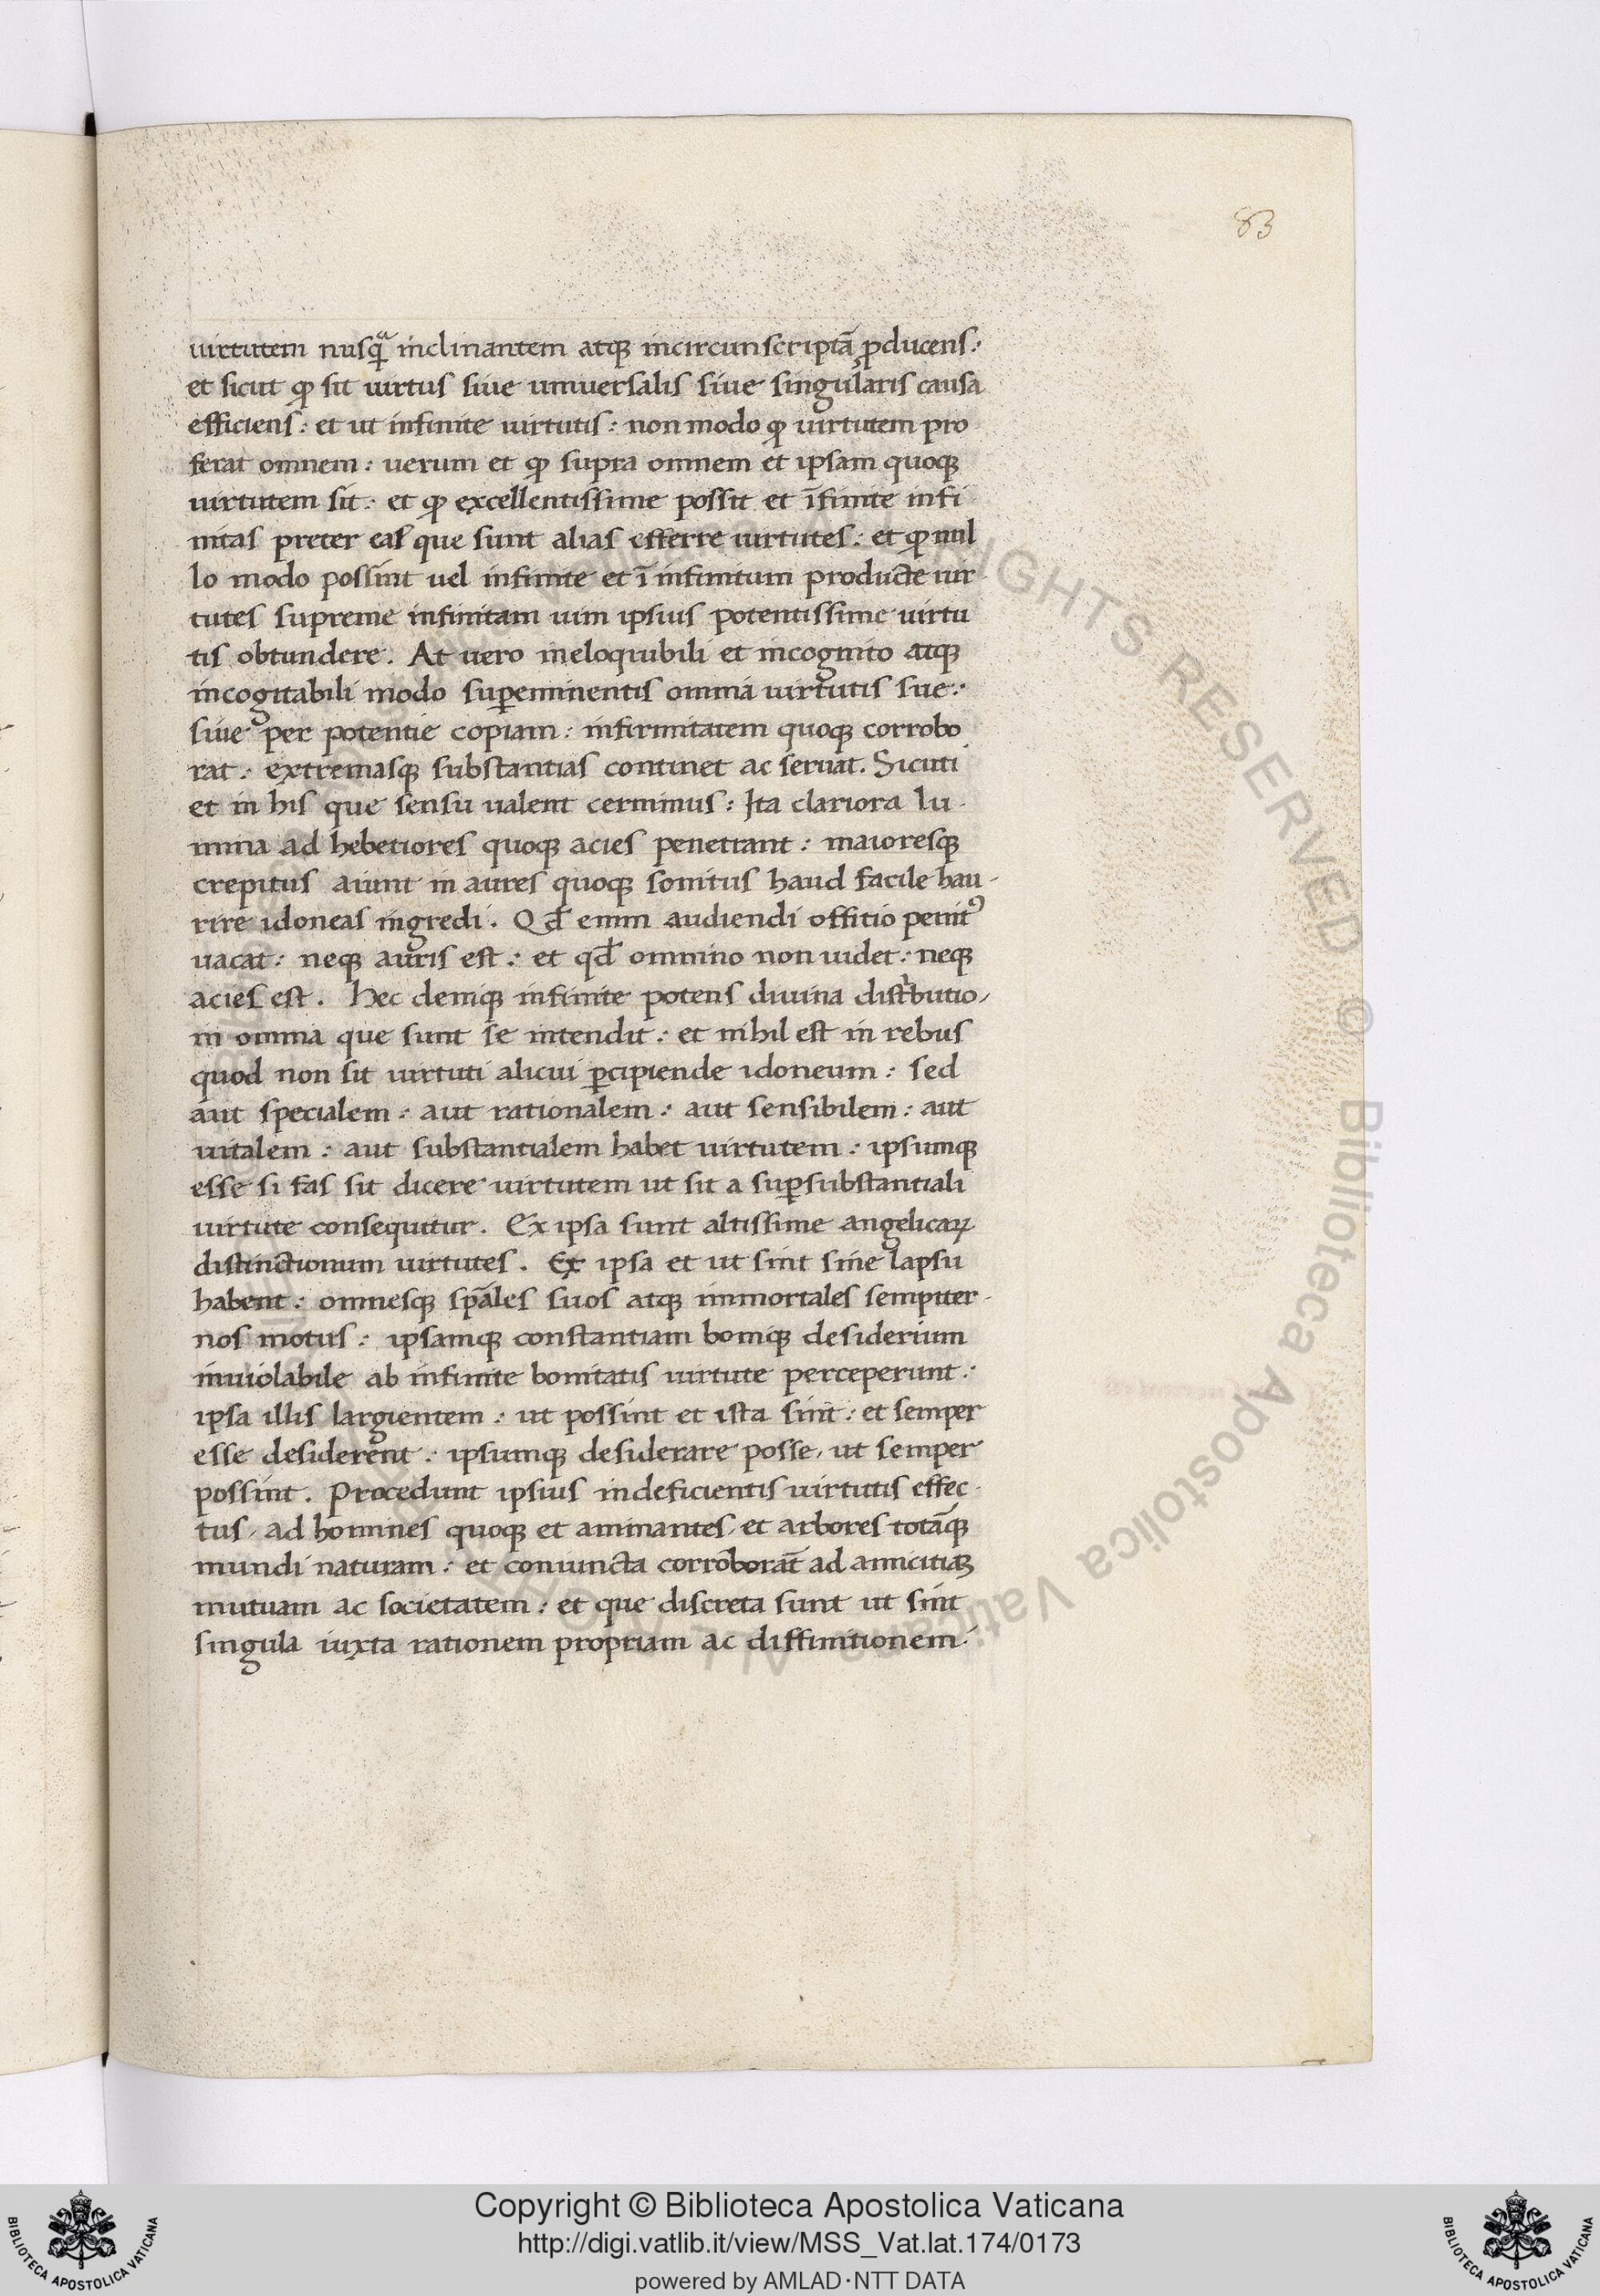 83
uirtutem nusqͣ inclinantem atqꝫ incircunscriptā ꝓducens:
et sicut ꝙ sit uirtus siue uniuersalis siue singularis causa
efficiens: et ut infinite uirtutis: non modo ꝙ uirtutem pro
ferat omnem: uerum et ꝙ supra omnem et ipsam quoqꝫ
uirtutem sit: et ꝙ excellentissime possit et īfinite infi
nitas preter eas que sunt alias efferre uirtutes: et ꝙ nul
lo modo possint uel infinite et ī infinitum producte uir
tutes supreme infinitam uim ipsius potentissime uirtu
tis obtundere. At uero ineloquibili et incognito atqꝫ
incogitabili modo suꝑeminentis omnia uirtutis sue:
siue per potentie copiam: infirmitatem quoqꝫ corrobo
rat: extremasqꝫ substantias continet ac seruat. Sicuti
et in his que sensu ualent cernimus: Ita clariora lu-
mina ad hebetiores quoqꝫ acies penetrant: maioresqꝫ
crepitus aiunt in aures quoqꝫ sonitus haud facile hau-
rire idoneas ingredi. Qđ enim audiendi offitio penitꝰ
uacat: neqꝫ auris est: et qđ omnino non uidet: neqꝫ
acies est. Hec deniqꝫ infinite potens diuina distͥbutio,
in omnia que sunt se intendit: et nihil est in rebus
quod non sit uirtuti alicui ꝑcipiende idoneum: sed
aut specialem: aut rationalem: aut sensibilem: aut
uitalem: aut substantialem habet uirtutem: ipsumqꝫ
esse si fas sit dicere uirtutem ut sit a suꝑsubstantiali
uirtute consequitur. Ex ipsa sunt altissime angelicaꝝ
distinctionum uirtutes. Ex ipsa et ut sint sine lapsu
habent: omnesqꝫ spāles suos atqꝫ immortales sempiter-
nos motus: ipsamqꝫ constantiam boniqꝫ desiderium
inuiolabile ab infinite bonitatis uirtute perceperunt:
ipsa illis largientem: ut possint et ista sint: et semper
esse desiderent: ipsumqꝫ desiderare posse, ut semper
possint. Procedunt ipsius indeficientis uirtutis effec-
tus, ad homines quoqꝫ et animantes, et arbores totāqꝫ
mundi naturam: et coniuncta corroborāt ad amicitiaꝫ
mutuam ac societatem: et que discreta sunt ut sint
singula iuxta rationem propriam ac diffinitionem:
Copyright © Biblioteca Apostolica Vaticana
http://digi.vatlib.it/view/MSS_Vat.lat.174/0173
powered by AMLAD·NTT DATA
BIBLIOTECA APOSTOLICA VATICANA
BIBLIOTECA APOSTOLICA VATICANA